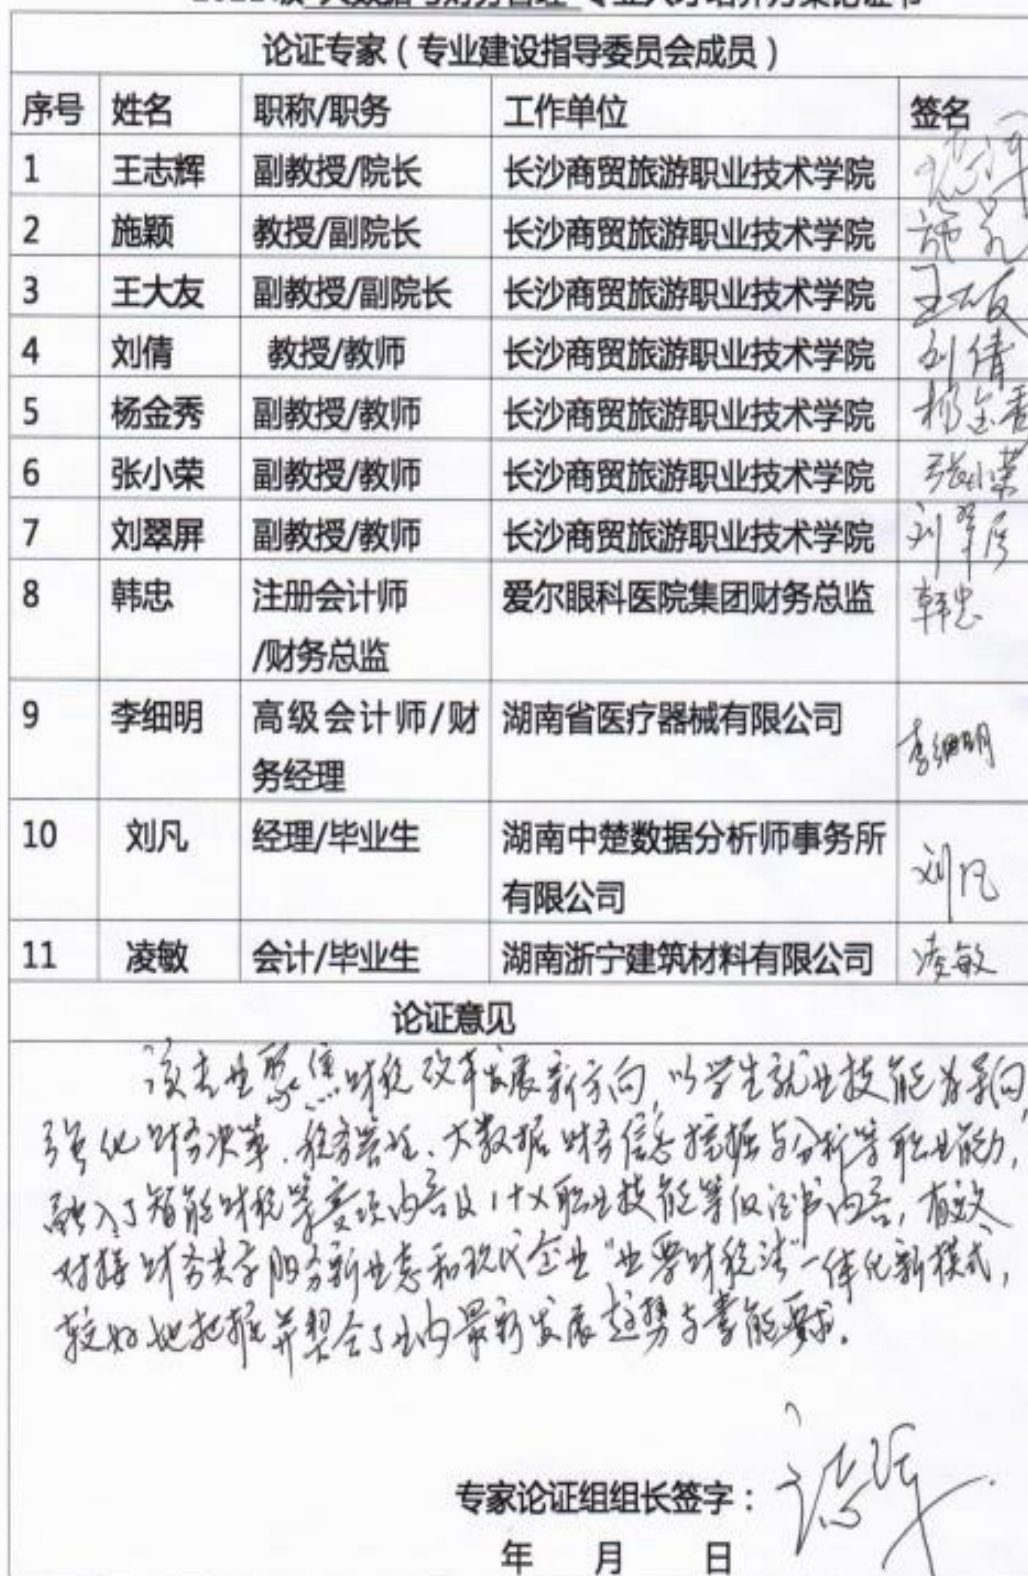 论证专家（专业建设指导委员会成员）
序号 姓名 职称/职务 工作单位 签名
1 王志辉 副教授/院长 长沙商贸旅游职业技术学院
2 施颖 教授/副院长 长沙商贸旅游职业技术学院 施颖
3 王大友 副教授/副院长 长沙商贸旅游职业技术学院 王大友
4 刘倩 教授/教师 长沙商贸旅游职业技术学院 刘倩
5 杨金秀 副教授/教师 长沙商贸旅游职业技术学院 杨金秀
6 张小荣 副教授/教师 长沙商贸旅游职业技术学院 张小荣
7 刘翠屏 副教授/教师 长沙商贸旅游职业技术学院 刘翠屏
8 韩忠 注册会计师 爱尔眼科医院集团财务总监 韩忠
/财务总监
9 李细明 高级会计师/财 湖南省医疗器械有限公司 李细明
务经理
10 刘凡 经理/毕业生 湖南中楚数据分析师事务所 刘凡
有限公司
11 凌敏 会计/毕业生 湖南浙宁建筑材料有限公司 凌敏
论证意见
该专业聚焦财税改革发展新方向，以学生就业技能为导向，
强化财务决策、税务、大数据财务信息挖掘与分析等职业能力，
融入了智能财税等赛项内容及1+X职业技能等级证书内容，有效
对接财务共享服务新业态和现代企业“业票财税法”一体化新模式，
较好地把握并契合了业内最新发展趋势与要求。
专家论证组组长签字：
年 月 日